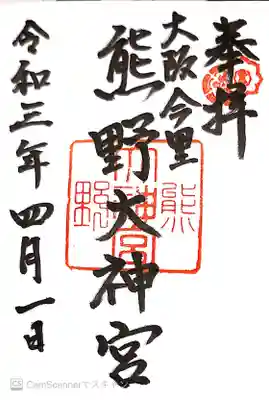 奉拝
大阪今里
熊野大神宮
熊野大神宮
令和三年四月一日
CS CamScannerでスキャン